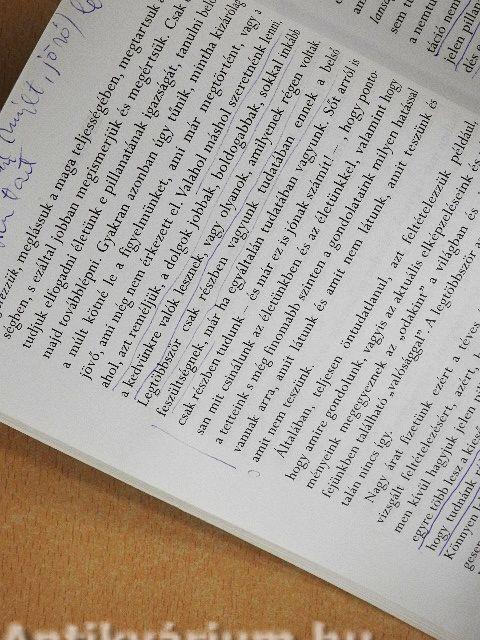 (múlt, jövő) le
nem tart
vezzük, meglássuk a maga teljességében, megtartsuk
ségeen, s ezáltal jobban megismerjük és megértsük. Csak
tudjuk elfogadni életünk e pillanatának igazságát, tanulni belő
majd továbblépni. Gyakran azonban úgy tűnik, mintha kizárólag
a múlt kötné le a figyelmünket, ami már megtörtént, vagy a
jövő, ami még nem érkezett el. Valahol máshol szeretnénk lenni,
ahol, azt reméljük, a dolgok jobbak, boldogabbak, sokkal inkább
a kedvünkre valók lesznek, vagy olyanok, amilyenek régen voltak.
Legtöbbször csak részben vagyunk tudatában ennek a belső
feszültségnek, már ha egyáltalán tudatában vagyunk. Sőt arról is
csak részben tudunk – és már ez is jónak számít! –, hogy ponto-
san mit csinálunk az életünkben és az életünkkel, valamint hogy
a tetteink s még finomabb szinten a gondolataink milyen hatással
vannak arra, amit látunk és amit nem látunk, amit teszünk és
amit nem teszünk.
Általában, teljesen öntudatlanul, azt feltételezzük például,
hogy amire gondolunk, vagyis az aktuális elképzeléseink és
ményeink megegyeznek az „odakint" a világban és
fejünkben található „valósággal". A legtöbbször az
talán nincs így.
Nagy árat fizetünk ezért a téves,
vizsgált feltételezésért, azért, h
men kívül hagyjuk jelen pil
egyre több lesz a kies
hogy tudnánk r
Könnyen
gesen
sem t
a nemtu
tació nem
jelen pilla
dés
Antikvárium.hu